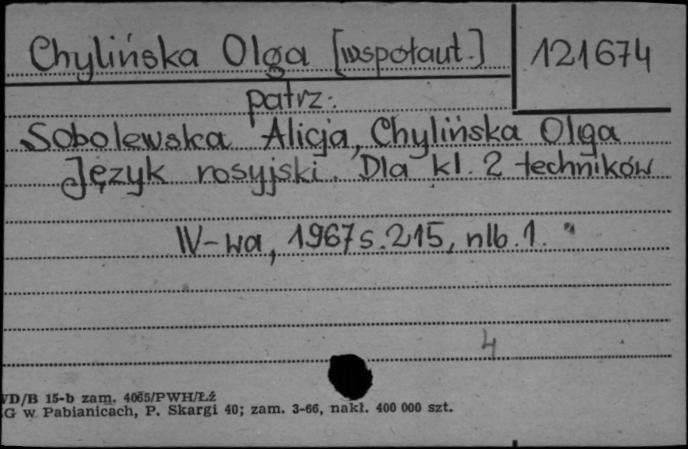 Chylińska Olga [współaut.] 121674
patrz:
Sobolewska Alicja, Chylińska Olga
Język rosyjski. Dla kl. 2 techników
W-wa, 1967 s. 215, nlb. 1.
4
VD/B 15-b zam. 4065/PWH/Łź
G w Pabianicach, P. Skargi 40; zam. 3-66, nakł. 400 000 szt.